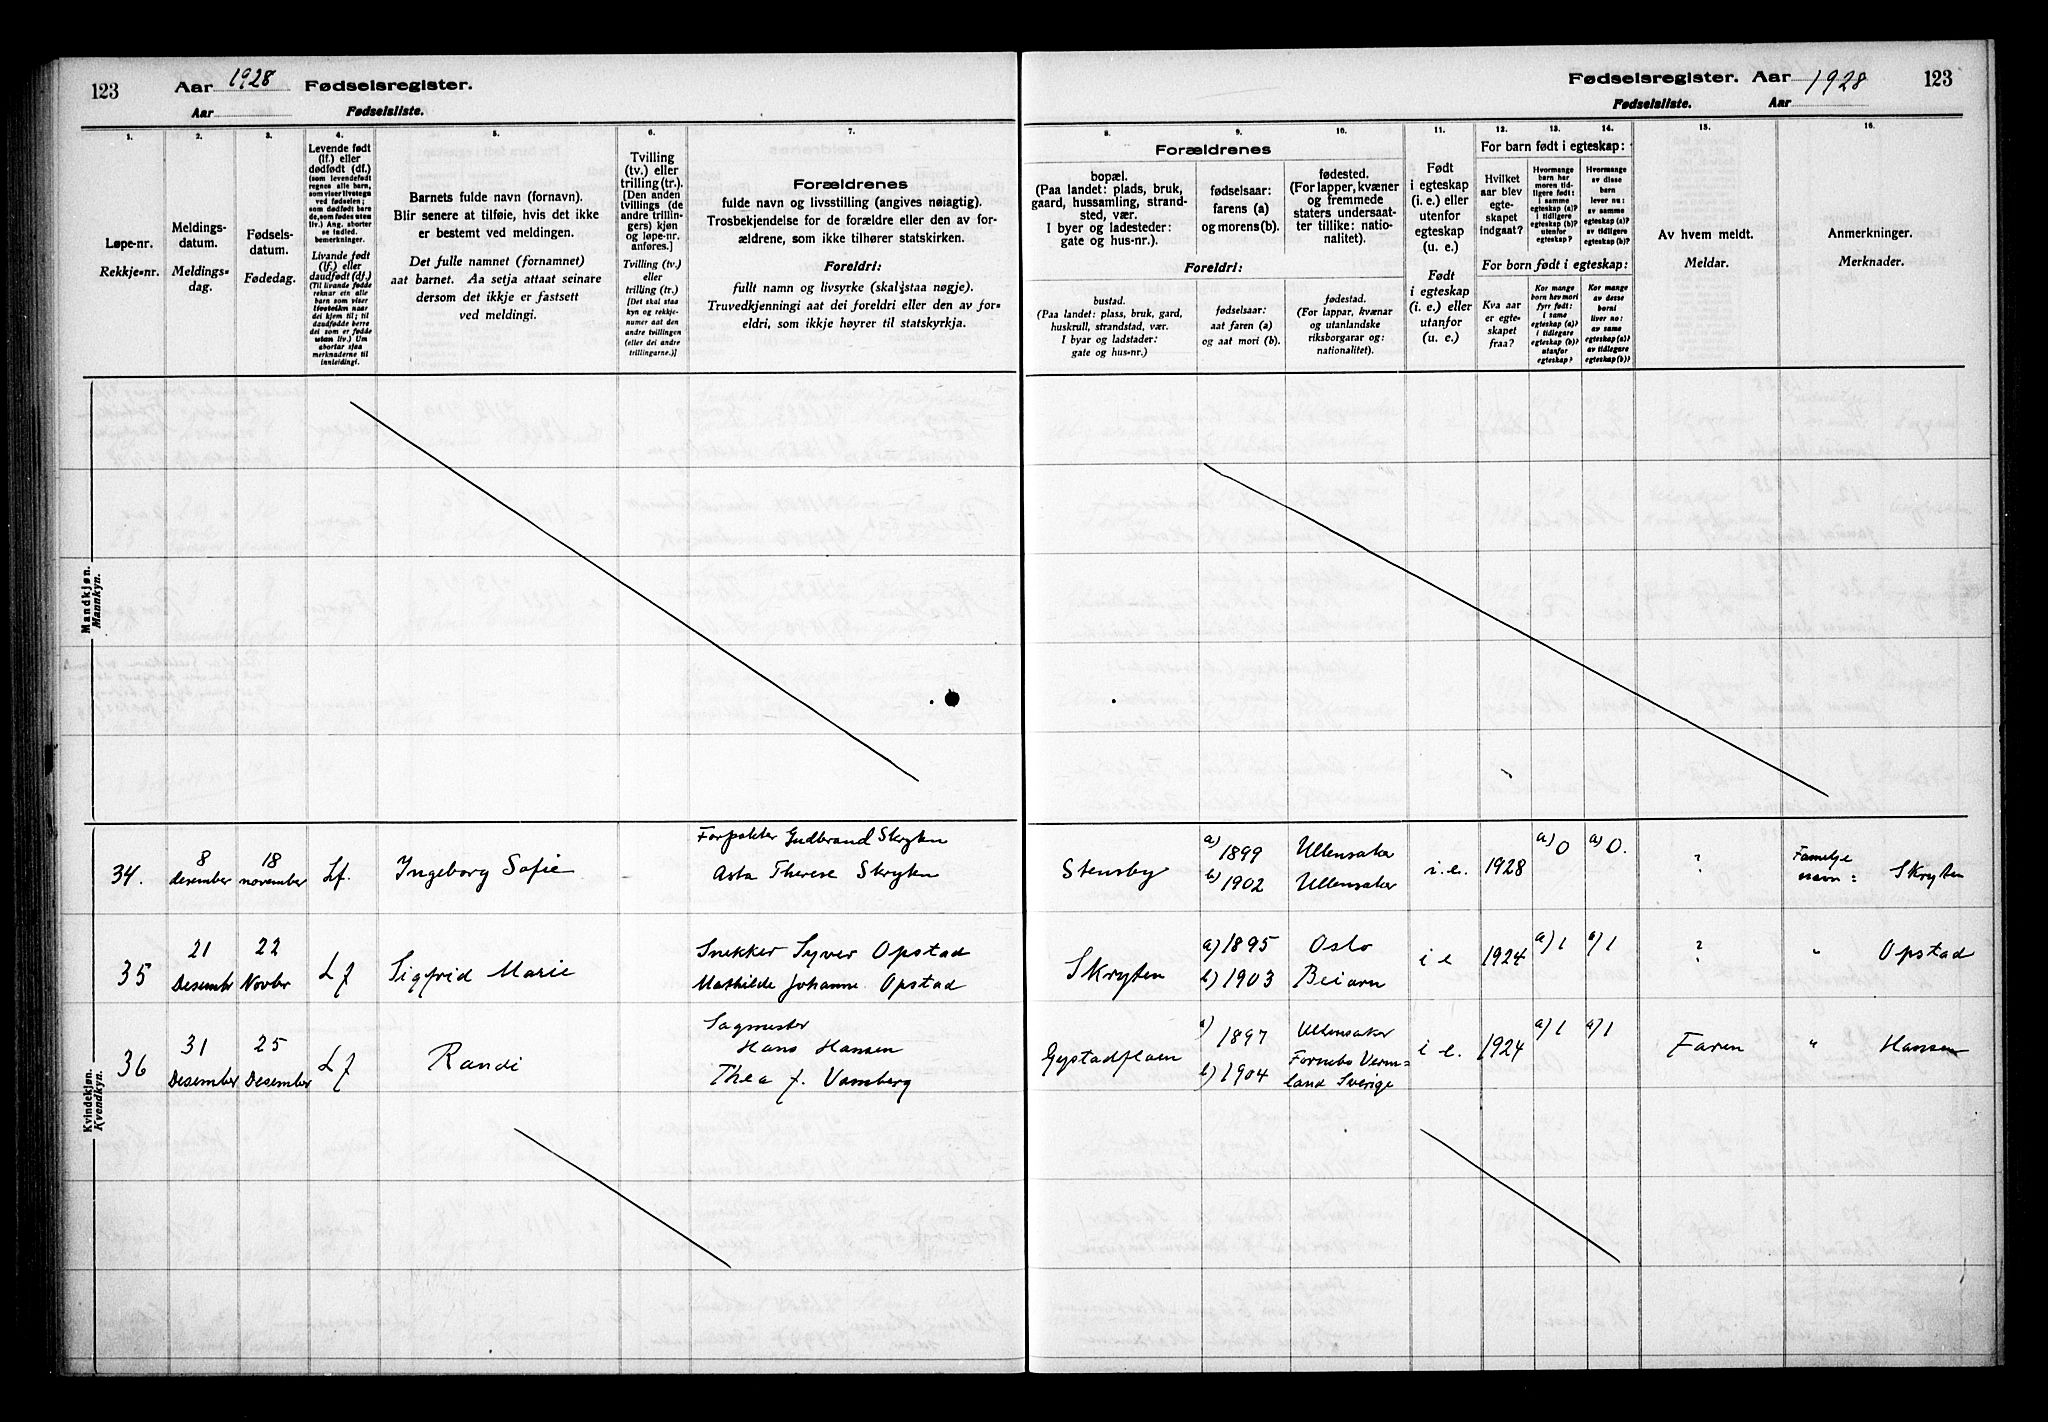 123
Aar 1928 Fødselsregister.
Aar Fødselsliste.
Fødselsregister. Aar 1928
Fødselsliste. Aar
123
1.
Løpe-nr.
Rekkje-nr.
2.
Meldings-
datum.
Meldings-
dag.
3.
Fødsels-
datum.
Fødedag.
4.
Levende født
(lf.) eller
dødfødt (df.)
(som levendefødt
regnes alle barn,
som viser livstegn
ved fødselen;
som dødfødt bare
de, som fødes uten
liv.) Ang. aborter
se indled.
bemerkninger.
Livande født
(lf.) eller
daudfødt (df.)
(Til livande fødde
reknar ein alle
barn som viser
livsteikn naar
dei kjem til; til
daudfødde berre
dei som er fødde
utan liv.) Um
abortar sjaa
merknaderne til
innleidingi.
5.
Barnets fulde navn (fornavn).
Blir senere at tilføie, hvis det ikke
er bestemt ved meldingen.
Det fulle namnet (fornamnet)
aat barnet. Aa setja attaat seinare
dersom det ikkje er fastsett
ved meldingi.
6.
Tvilling
(tv.) eller
trilling (tr.)
[Den anden
tvillings (de
andre trillin-
gers) kjøn
og løpe-nr.
anføres.]
Tvilling (tv.)
eller
trilling (tr.)
[Det skal staa
kyn og rekkje-
numer aat den
andre tvillingen
(eller dei andre
trillingarne.)]
7.
Forældrenes
fulde navn og livsstilling (angives nøiagtig).
Trosbekjendelse for de forældre eller den av for-
ældrene, som ikke tilhører statskirken.
Foreldri:
fullt namn og livsyrke (skal staa nøgje).
Truvedkjenningi aat dei foreldri eller den av for-
eldri, som ikkje høyrer til statskyrkja.
8. 9. 10.
Forældrenes
bopæl.
(Paa landet: plads, bruk,
gaard, hussamling, strand-
sted, vær.
I byer og ladesteder:
gate og hus-nr.).
fødselsaar:
farens (a)
og morens (b).
fødested.
(For lapper, kvæner
og fremmede
staters undersaat-
ter tillike: natio-
nalitet).
Foreldri:
bustad.
(Paa landet: plass, bruk, gard,
huskrull, strandstad, vær.
I byar og ladstader:
gate og hus-nr.)
fødselsaar:
aat faren (a)
og aat mori (b).
fødestad.
(For lappar, kvænar
og utanlandske
riksborgarar og:
nationalitet).
11.
Født
i egteskap
(i. e.) eller
utenfor
egteskap
(u. e.)
Født
i egteskap
(i. e.) eller
utanfor
(u. e.)
12. 13. 14.
For barn født i egteskap:
Hvilket
aar blev
egte-
skapet
indgaat?
Hvormange
barn har
moren tid-
ligere født:
i samme
egteskap (a)?
i tidligere
egteskap (b)?
utenfor
egteskap?
Hvormange
av disse
barn
lever nu:
av samme
egteskap (a)?
av tidligere
egteskap (b)?
For born født i egteskap:
Kva aar
er egte-
skapet
fraa?
Kor mange
born hev mori
fyrr født:
i same
egteskap (a)?
i tidlegare
egteskap (b)?
utanfor
egteskap?
Kor mange
av desse
borni
lever no:
av same
egteskap (a)?
av tidlegare
egteskap (b)?
15.
Av hvem meldt.
Meldar.
16.
Anmerkninger.
Merknader.
Mandkjøn.
Mannkyn.
Kvindekjøn.
Kvendkyn.
34. 8 desember 18 november Lf. Ingeborg Sofie
Forpakter Gudbrand Skryten
Asta Therese Skryten
Stensby a) 1899 Ullensaker
b) 1902 Ullensaker
i. e. 1928 a) 0 a) 0. ? Familje navn: Skryten
35 21 Desembr 22 Novbr Lf Sigfrid Marie
Snekker Syver Opstad
Mathilde Johanne Opstad
Skryten a) 1895 Oslo
b) 1903 Beiarn
i e 1924 a) 1 a) 1 ? " Opstad
36 31 Desember 25 Desember Lf Randi
Sagmester
Hans Hansen
Thea f. Vamberg
Gystadfloen a) 1897 Ullensaker
b) 1904 Fornebo Verm=
land Sverige
i e. 1924 a) 1 a) 1 Faren " Hansen